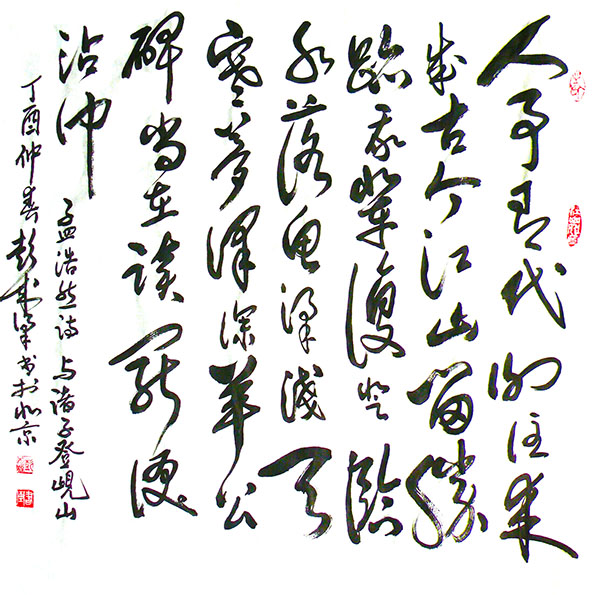 人事有代谢往来
成古今江山留勝
跡我辈復登臨
水落鱼梁浅天
寒梦泽深羊公
碑尚在读罢泪
沾巾
孟浩然诗 与诸子登岘山
丁酉仲春彭成书于北京